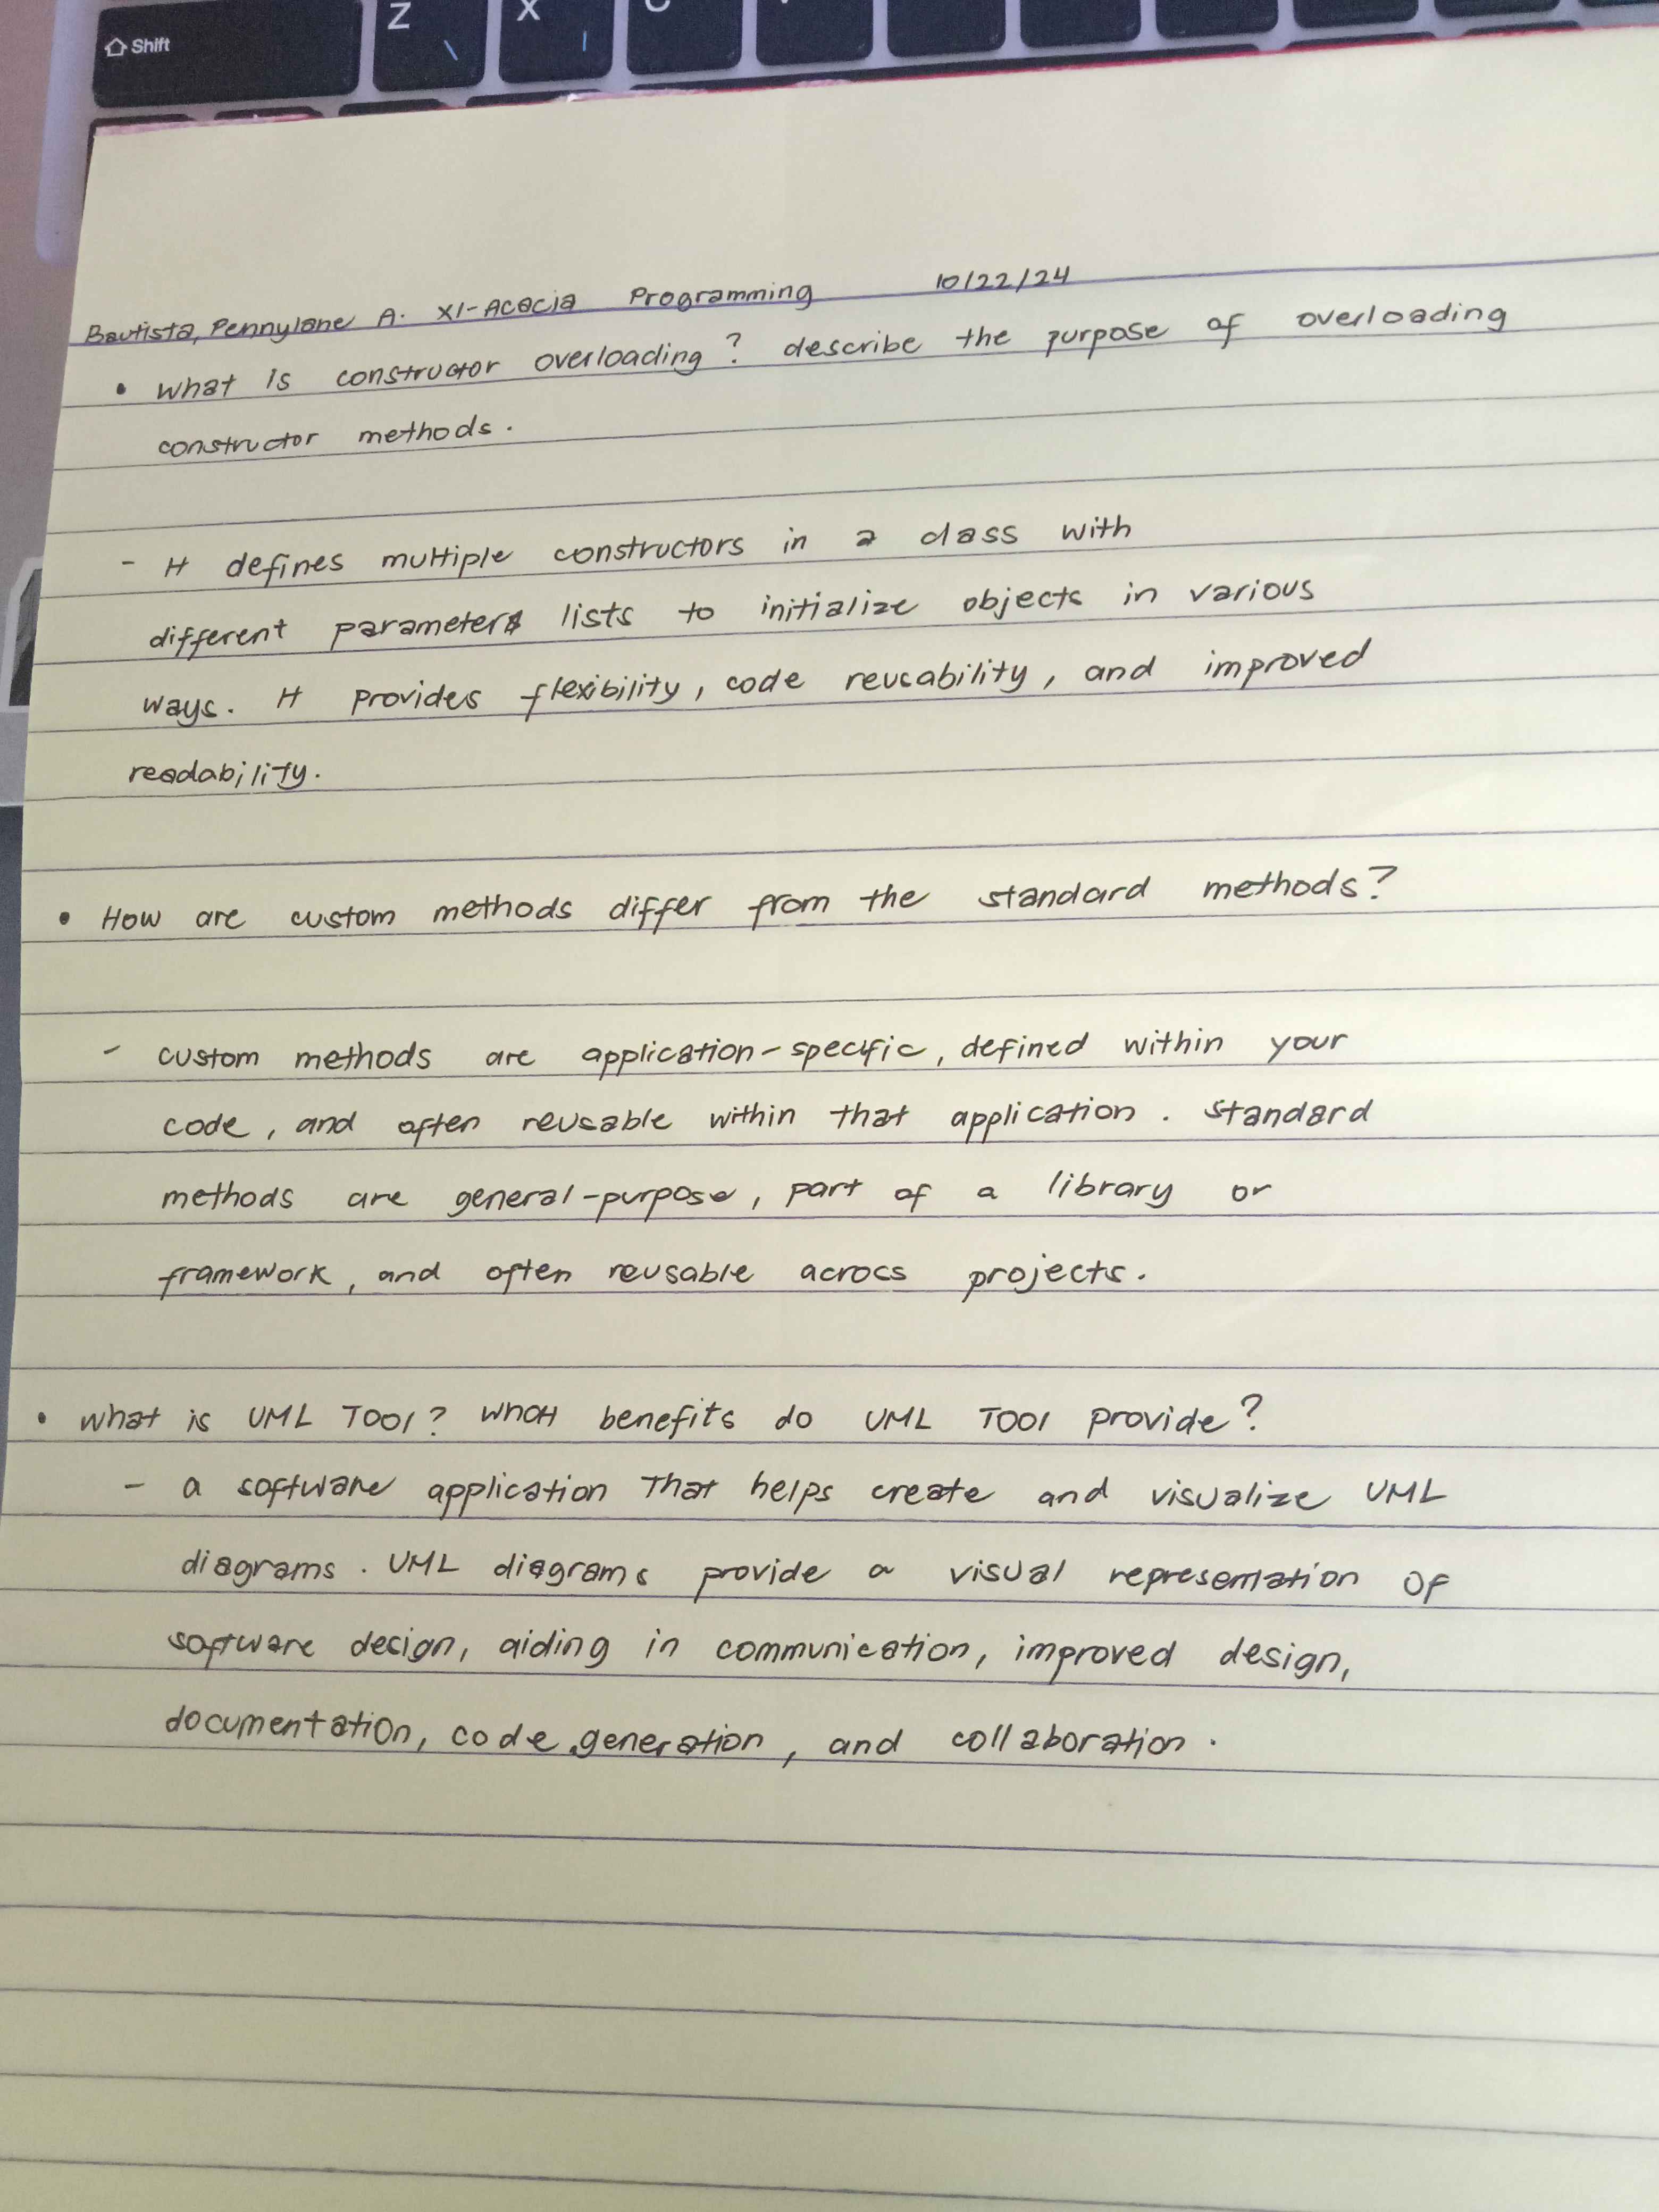 Shift
Z
X
C
Bautista, Pennylane A. XI-Acacia Programming 10/22/24
• What is constructor overloading? describe the purpose of overloading
constructor methods.
- It defines multiple constructors in a class with
different parameter lists to initialize objects in various
ways. It provides flexibility, code reusability, and improved
readability.
• How are custom methods differ from the standard methods?
- custom methods are application-specific, defined within your
code, and often reusable within that application. Standard
methods are general-purpose, part of a library or
framework, and often reusable across projects.
• What is UML Tool? What benefits do UML Tool provide?
- a software application that helps create and visualize UML
diagrams. UML diagrams provide a visual representation of
software design, aiding in communication, improved design,
documentation, code generation, and collaboration.